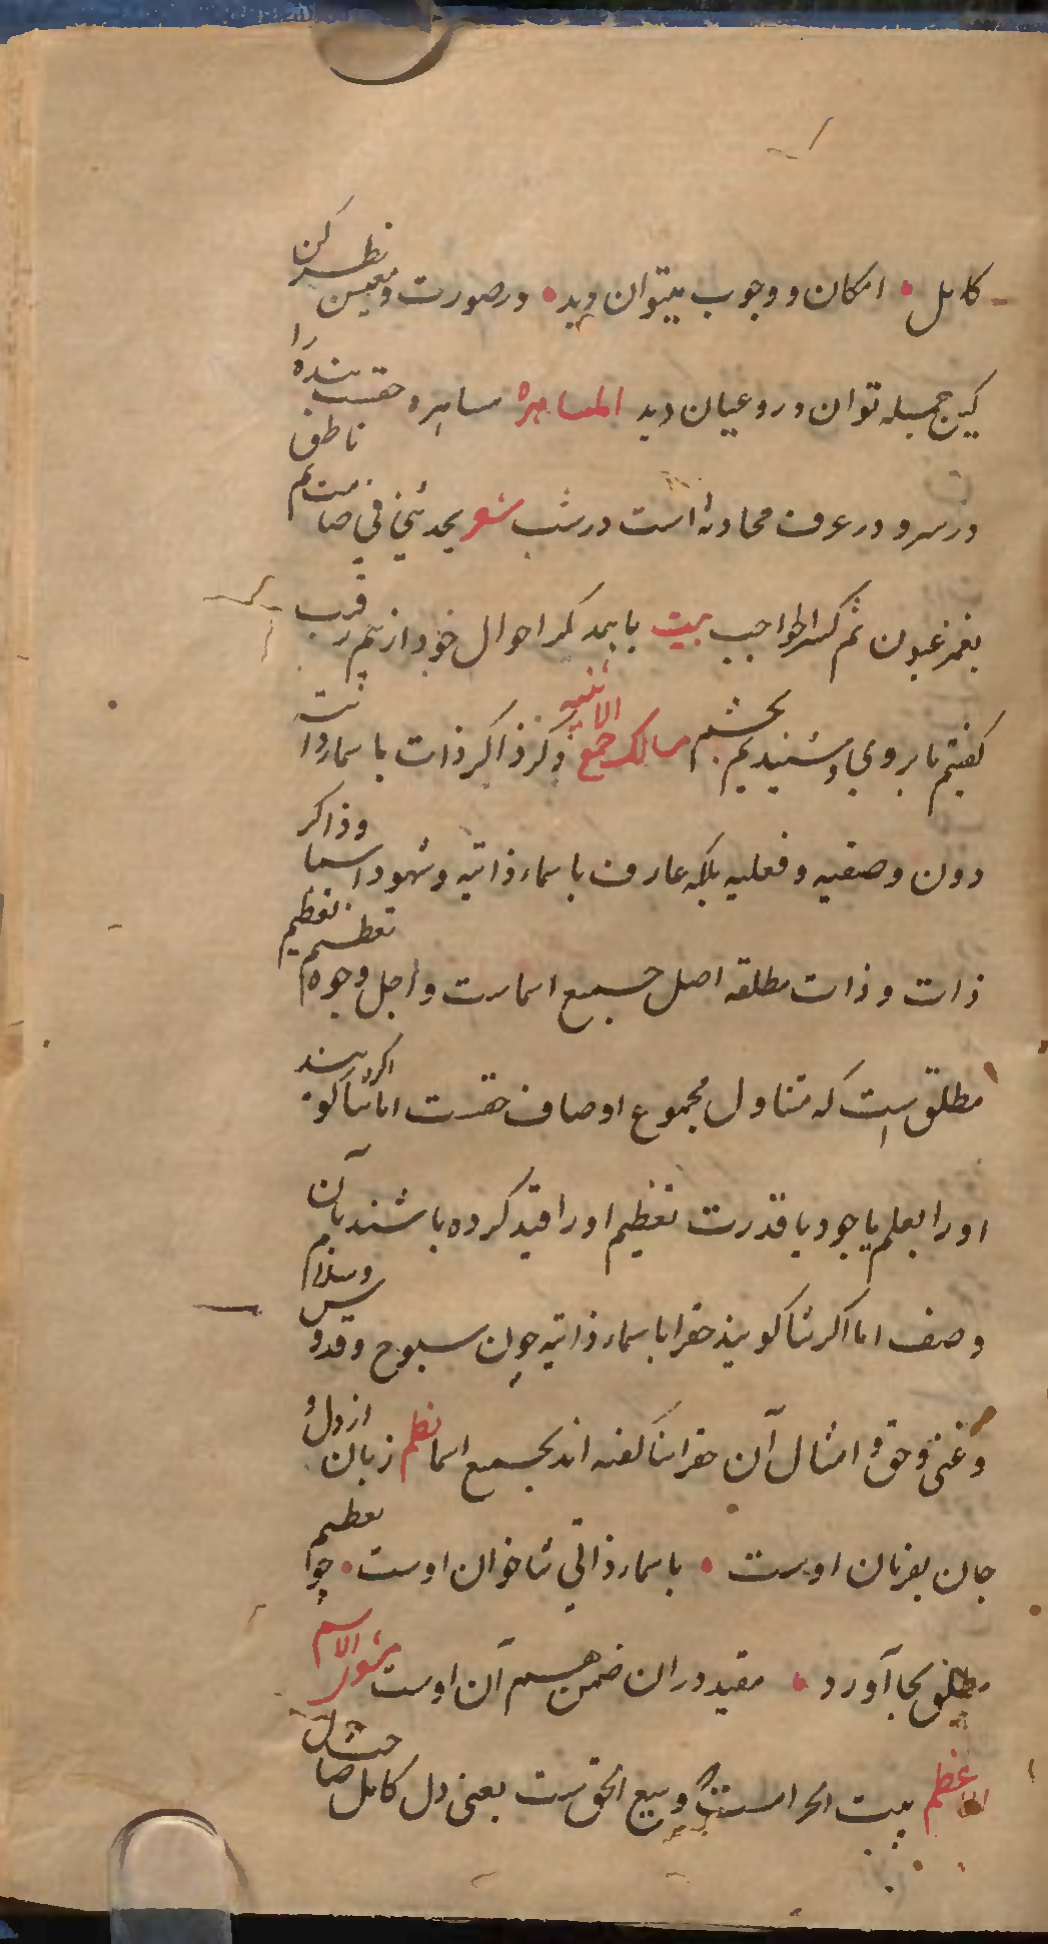 کامل • امکان و وجوب میتوان دید • در صورت و معنیش نظر کن
کین جمله توان درو عیان دید المسامره مسامره حقست بنده را
در سر و در عرف محادثه است در شب شعر یحدثنی فی صامت ثم ناطق
بغمز عیون ثم کسر الحواجب بیت با همدکر احوال خود از بیم رقیب
کفتیم بابروی و شنیدیم بچشم مسالک جمع الاثنیه ذکر ذاکر ذات باسماء ذات
دون وصفیه و فعلیه بلکه عارف باسماء ذاتیه و شهود اسما و ذاکر
ذات و ذات مطلقه اصل جمیع اسماست و اجل وجوه تعظیم تعظیم
مطلق است که متناول مجموع اوصاف حقست اما ثنا کو اکر بیند
او را بعلم یا جود یا قدرت تعظیم او را قید کرده باشند بآن
وصف اما اکر ثنا کویند حقرا باسماء ذاتیه چون سبوح و قدوس و سلام
و غنی و حق و امثال آن حقرا ثنا کفته اند بجمیع اسما نظم زبان از دل و
جان بفرمان اوست • باسماء ذاتی ثنا خوان اوست • چو تعظیم
مطلق بجا آورد • مقید دران ضمن هم آن اوست مستوی الاسم
الاعظم بیت الحرامست که وسیع الحق است یعنی دل کامل صا